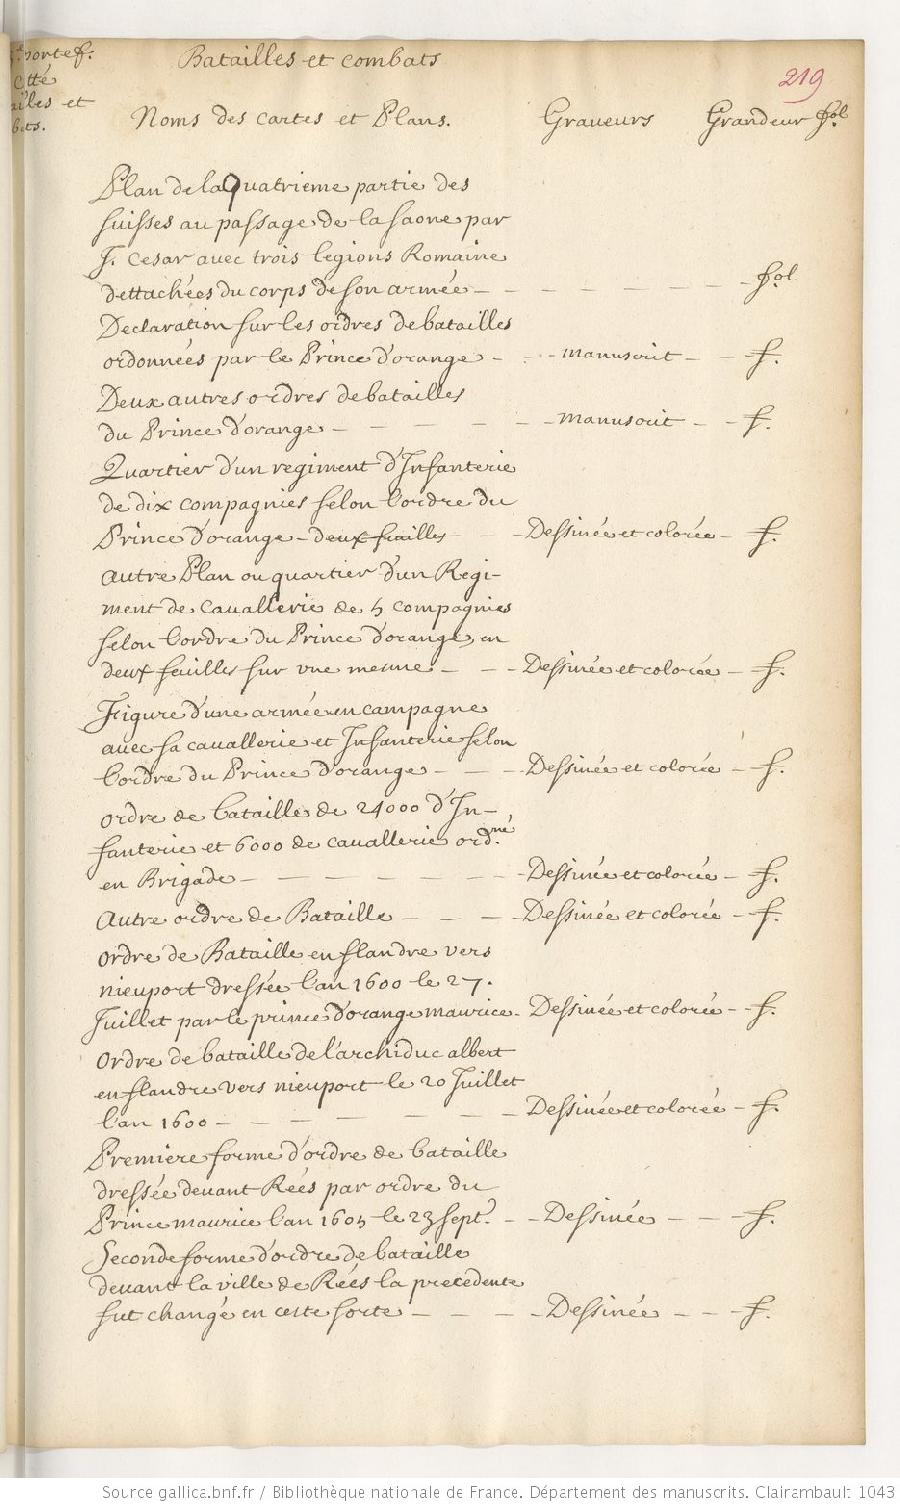 portef.
Batailles et combats
219
cotté
ailes et
bats.
Noms des cartes et Plans. Graveurs Grandeur fol.
Plan de la Quatrieme partie des
suisses au passage de la saone par
J. Cesar avec trois legions Romaine
dettachées du corps de son armée - - - - - - - - fol
Declaration sur les ordres de batailles
ordonnées par le Prince d'orange - - - manuscrit - - f.
Deux autres ordres de batailles
du Prince d'orange - - - - - - manuscrit - - f.
Quartier d'un regiment d'Infanterie
de dix compagnies selon l'ordre du
Prince d'orange - deux feuilles - Dessinée et colorée - f.
autre Plan ou quartier d'un Regi-
ment de cavallerie de 5 compagnies
selon l'ordre du Prince d'orange, en
deux feuilles sur une mesme - - - Dessinée et colorée - f.
Figure d'une armée en campagne
avec sa cavallerie et Infanterie selon
l'ordre du Prince d'orange - - - Dessinée et colorée - f.
ordre de bataille de 24000 d'In-
fanterie et 6000 de cavallerie ord.né
en Brigade - - - - - - - Dessinée et colorée - f.
Autre ordre de Bataille - - - Dessinée et colorée - f.
ordre de Bataille en flandre vers
nieuport dressée l'an 1600 le 27.
Juillet par le prince d'orange maurice - Dessinée et colorée - - f.
ordre de bataille de l'archiduc albert
en flandre vers nieuport le 20 Juillet
l'an 1600 - - - - - - - Dessinée et colorée - f.
Premiere forme d'ordre de bataille
dressée devant Rées par ordre du
Prince maurice l'an 1605 le 23 sept.e - - Dessinée - - - f.
Seconde forme d'ordre de bataille
devant la ville de Rées la precedente
fut changé en cette sorte - - - - Dessinée - - - f.
Source gallica.bnf.fr / Bibliothèque nationale de France. Département des manuscrits. Clairambault 1043